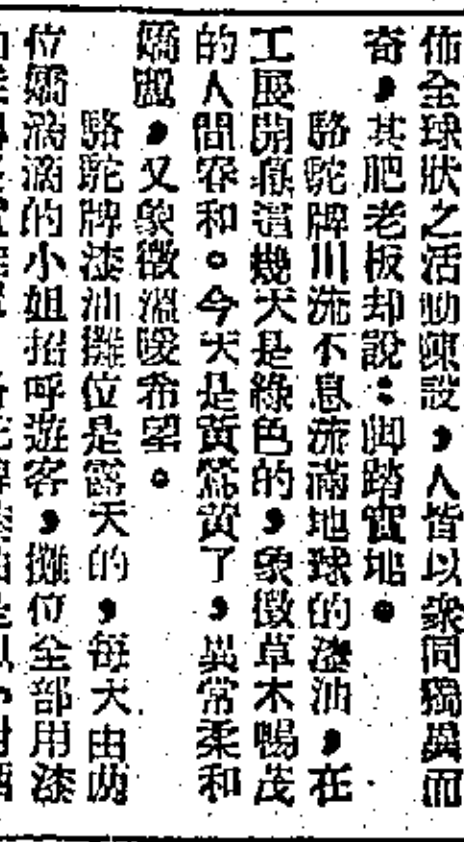 佈全球狀之活動陳設，人皆以衆同獨異而
奇，其肥老板却說：脚踏實地。
駱駝牌川流不息流滿地球的漆油，在
工展開幕這幾天是綠色的，象徵草木暢茂
的人間春和。今天是黃鶯黃了，異常柔和
嬌麗，又象徵溫暖希望。
駱駝牌漆油攤位是露天的，每天由兩
位嬌滴滴的小姐招呼遊客，攤位全部用漆